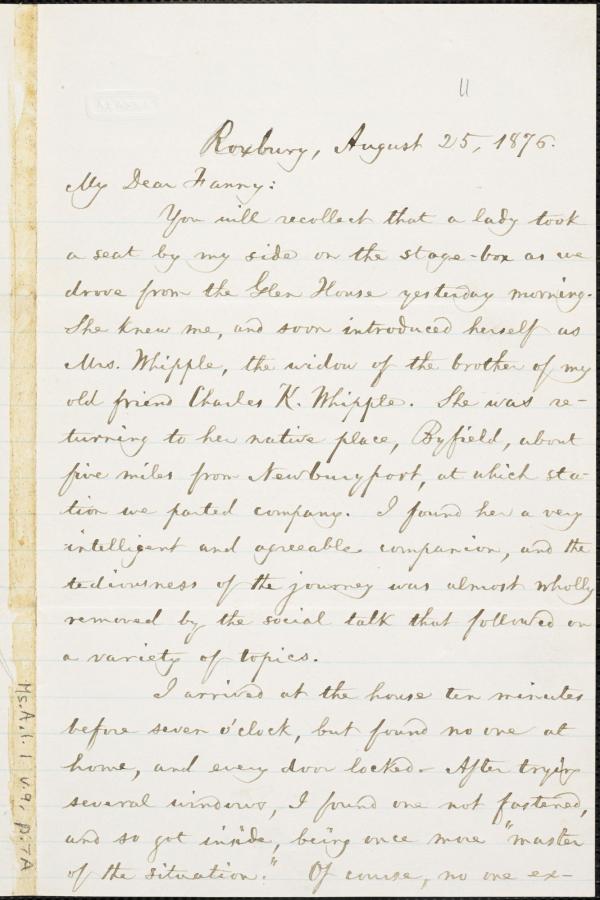 11
Roxbury, August 25, 1876.
My Dear Fanny:
You will recollect that a lady took
a seat by my side on the stage-box as we
drove from the Glen House yesterday morning.
She knew me, and soon introduced herself as
Mrs. Whipple, the widow of the brother of my
old friend Charles K. Whipple. She was re-
turning to her native place, Byfield, about
five miles from Newburyport, at which sta-
tion we parted company. I found her a very
intelligent and agreeable companion, and the
tediousness of the journey was almost wholly
removed by the social talk that followed on
a variety of topics.
I arrived at the house ten minutes
before seven o'clock, but found no one at
home, and every door locked. After trying
several windows, I found one not fastened,
and so got inside, being once more "master
of the situation." Of course, no one ex-
Ms.A.1.1 v.9, p.7A